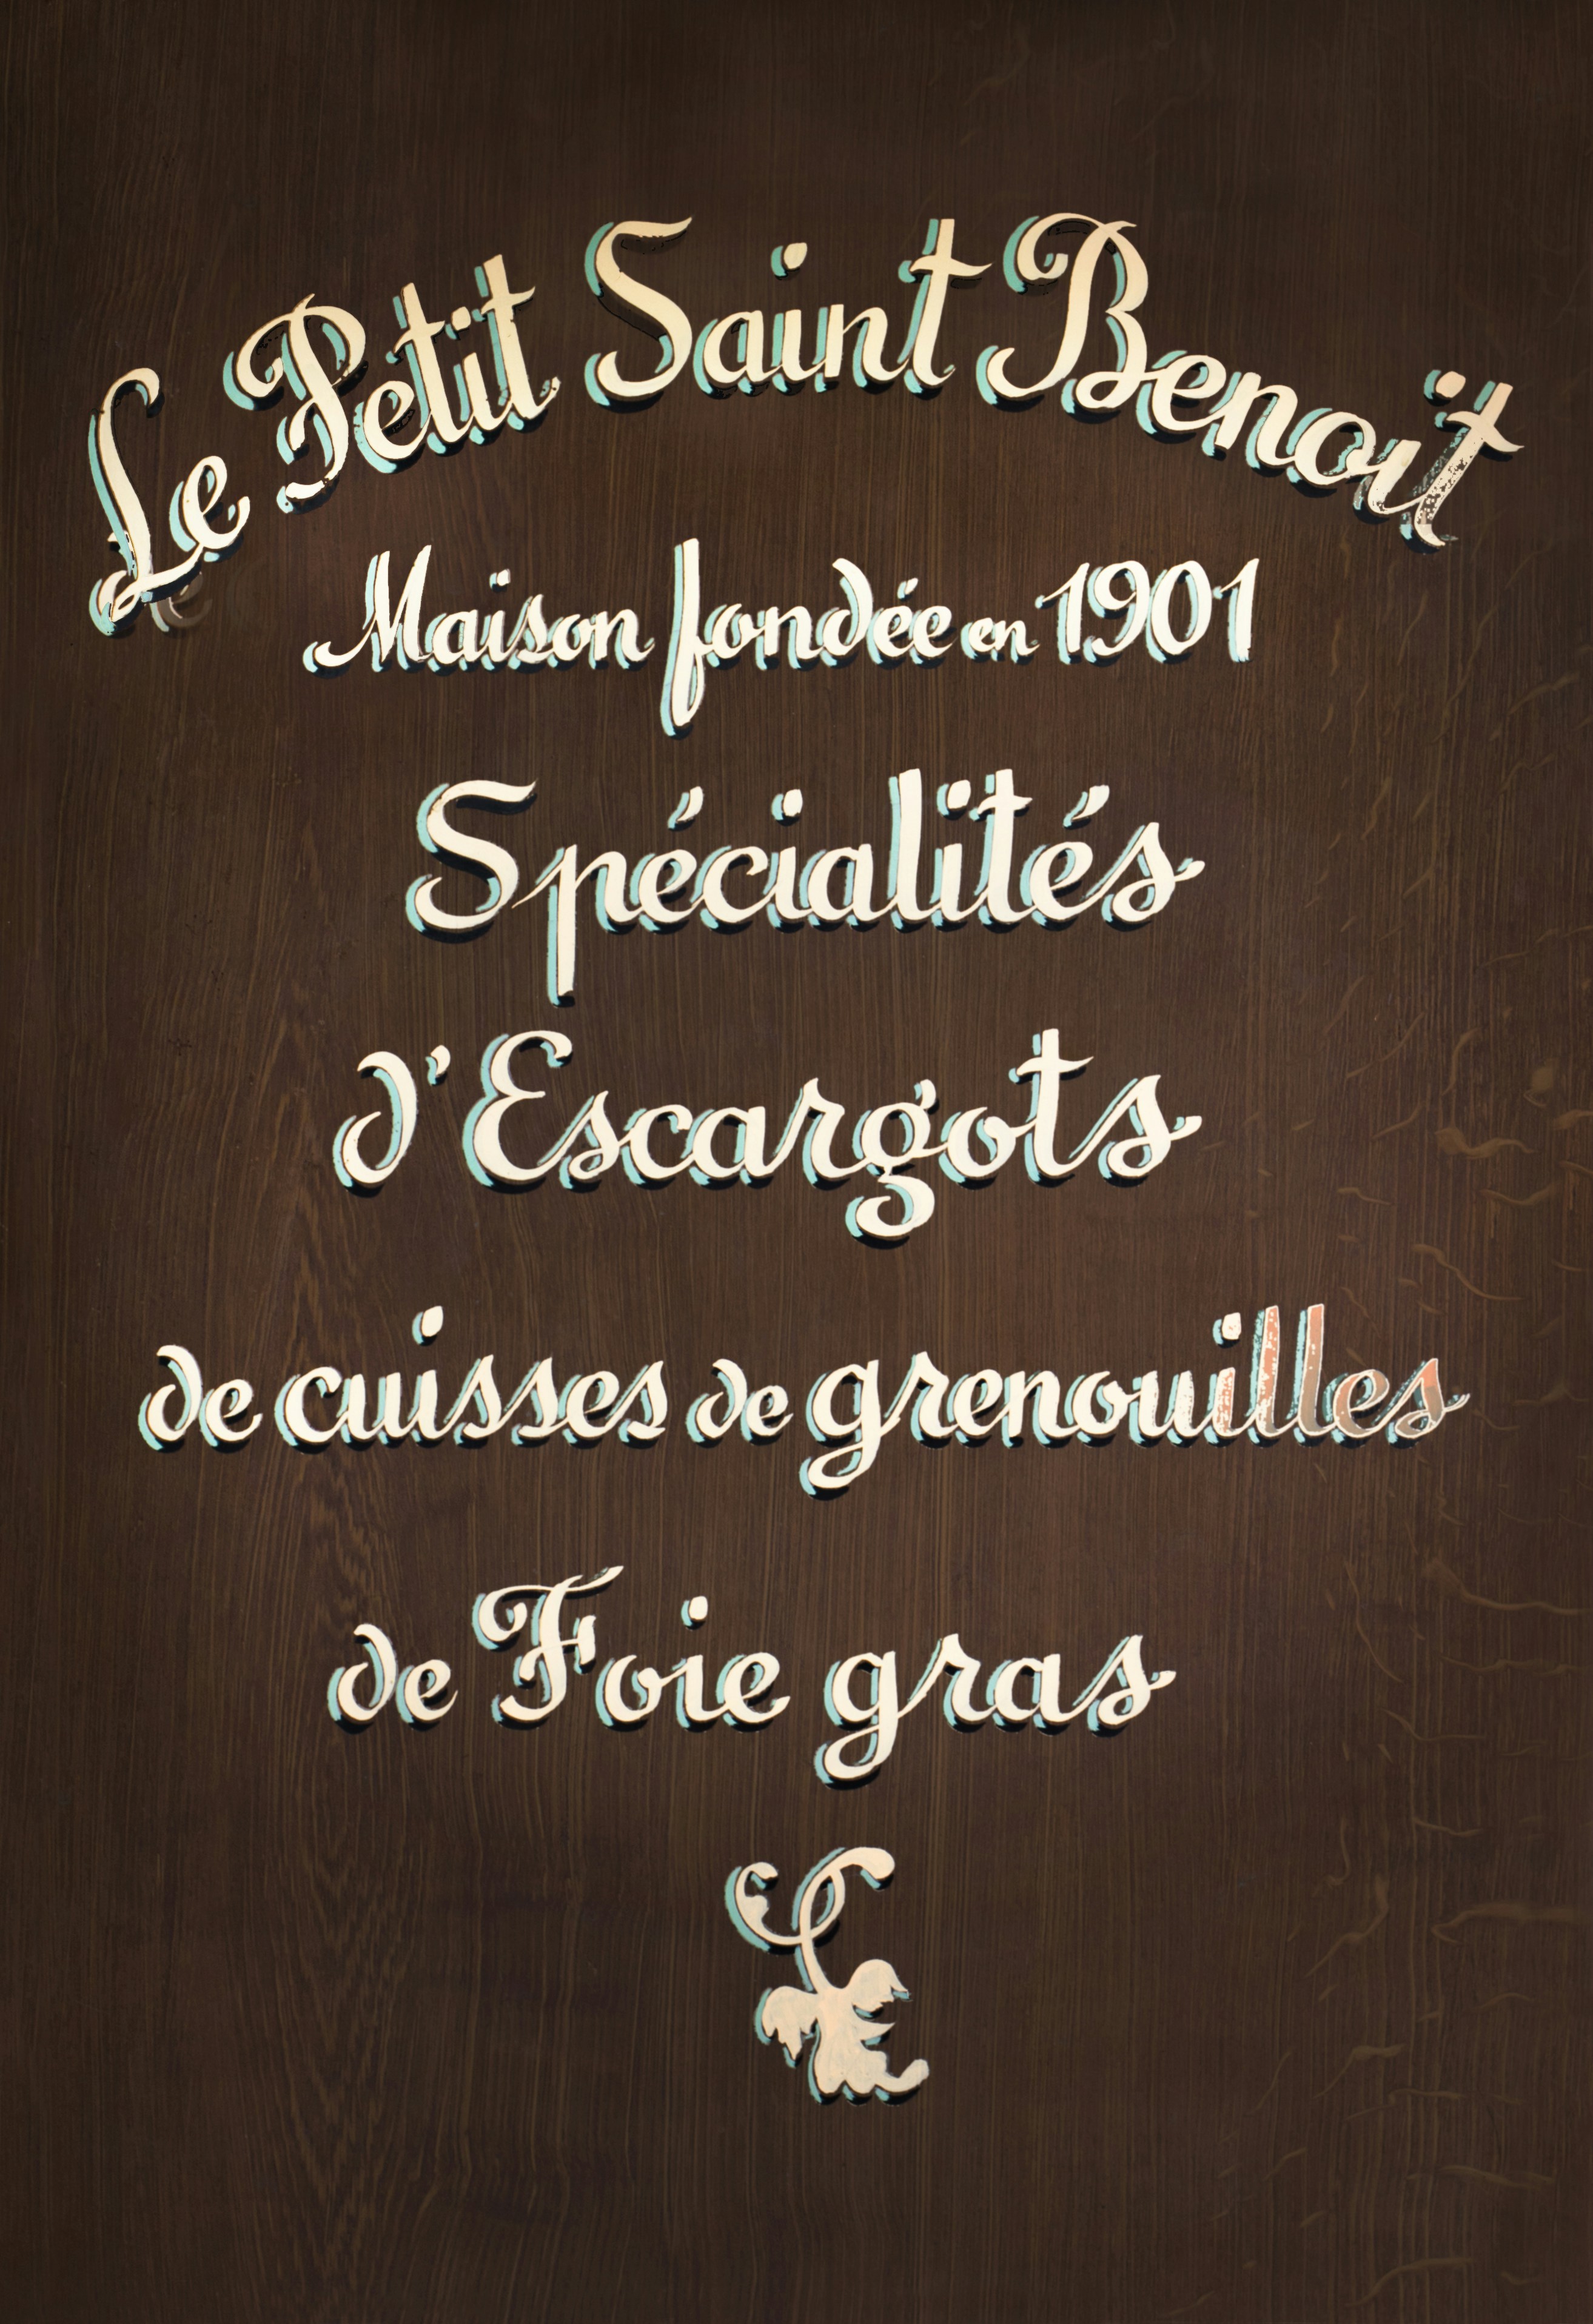 Le Petit Saint Benoit
Maison fondée en 1901
Spécialités
d'Escargots
de cuisses de grenouilles
de Foie gras